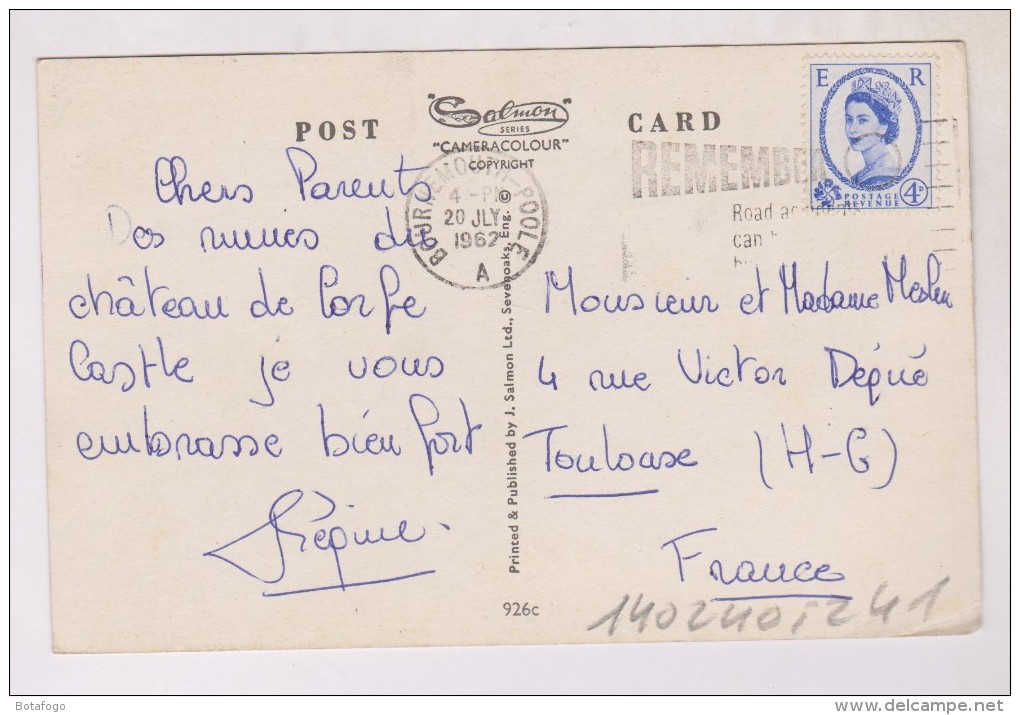 POST
"Salmon"
SERIES
"CAMERACOLOUR"
COPYRIGHT
CARD
E R
POSTAGE
REVENUE
4D
REMEMBER
Road accidents
can
BOURNEMOUTH-POOLE
4 - PM
20 JLY
1962
A
Chers Parents
Des ruines du
château de Corfe
Castle je vous
embrasse bien fort
Régine.
Printed & Published by J. Salmon Ltd., Sevenoaks, Eng. ©
Monsieur et Madame
4 rue Victor Déqué
Toulouse (H-G)
France
926c
1402410,241
Botafogo
www.delcampe.net